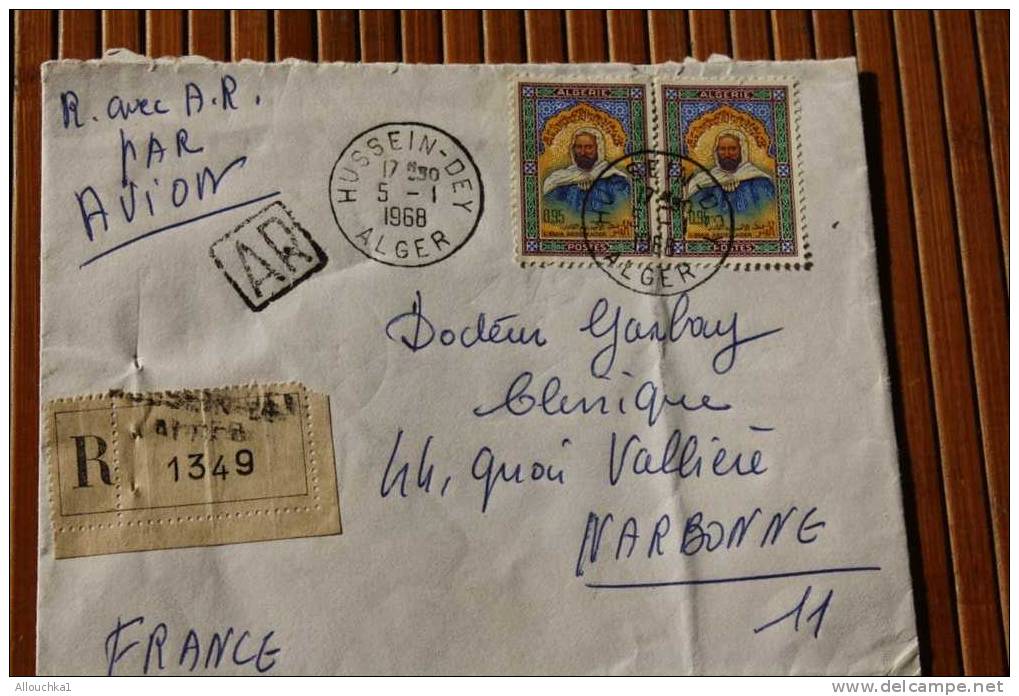 R. avec A.R.
PAR
AVION
AR
HUSSEIN-DEY
17
5 - 1
1968
ALGER
ALGERIE
0,95
POSTES
ALGERIE
0,95
POSTES
ALGER
Docteur Garbay
Clinique
44, quai Vallière
NARBONNE
11
FRANCE
HUSSEIN-DEY
ALGER
R
1349
Allouchka1
www.delcampe.net